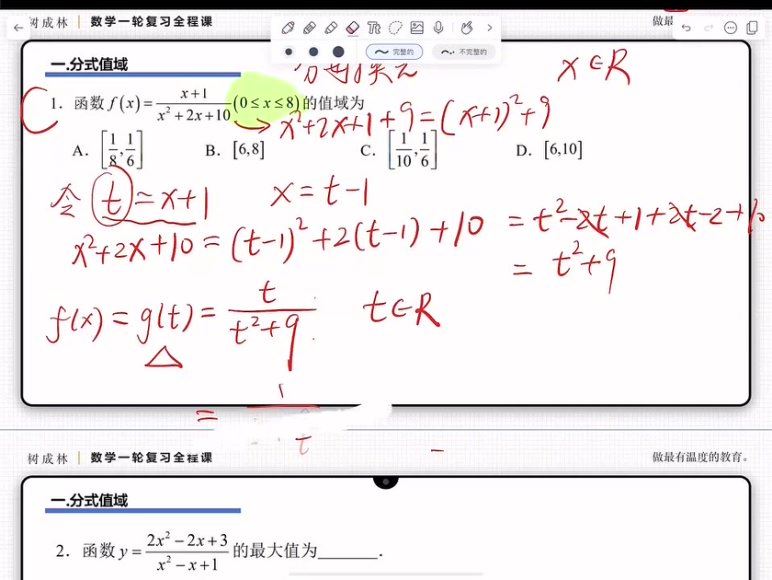 树成林 | 数学一轮复习全程课 做最
T 完整的 不完整的
一.分式值域
分母换元 x∈R
1. 函数 f(x)=\frac{x+1}{x^2+2x+10}(0≤x≤8)的值域为
→ x²+2x+1+9=(x+1)²+9
A. [1/8, 1/6] B. [6,8] C. [1/10, 1/6] D. [6,10]
令 t=x+1 x=t-1
x²+2x+10=(t-1)²+2(t-1)+10 =t²-2t+1+2t-2+10
=t²+9
f(x)=g(t)=\frac{t}{t²+9} t∈R
△
= \frac{1}{t}
树成林 | 数学一轮复习全程课 做最有温度的教育。
一.分式值域
2. 函数 y=\frac{2x^2-2x+3}{x^2-x+1} 的最大值为______.